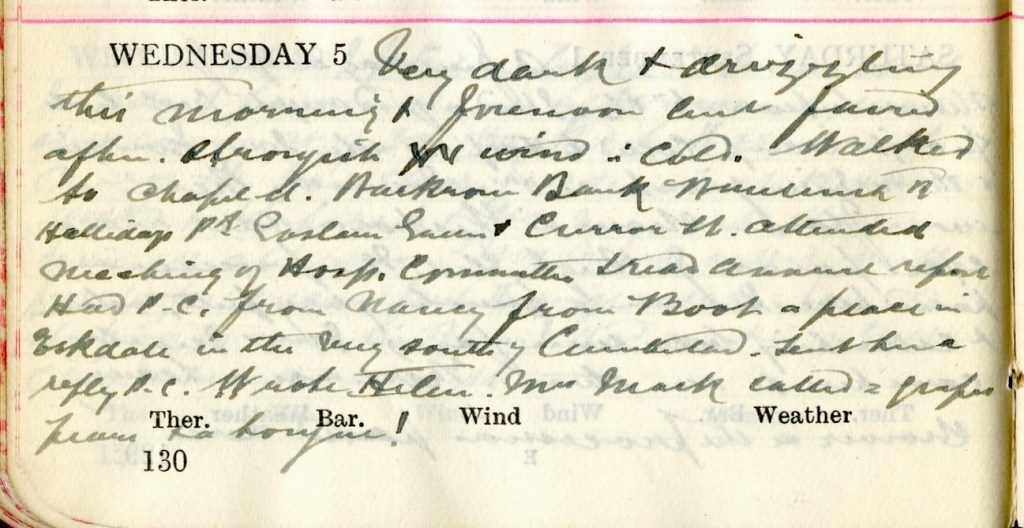 WEDNESDAY 5 Very dark & drizzling
this morning & forenoon but faired
after. Strongish wind : cold. Walked
to Chapel St. Bank
Hallidays Pk Eastern & Curror St. attended
meeting of Hosp. Committee & read annual report
Had P.C. from Nancy from Boot a place in
Eskdale in the very south of Cumberland. Sent her a
reply P.C. Wrote Helen. Mrs Mack called = grapes
from
Ther. Bar. Wind Weather
130